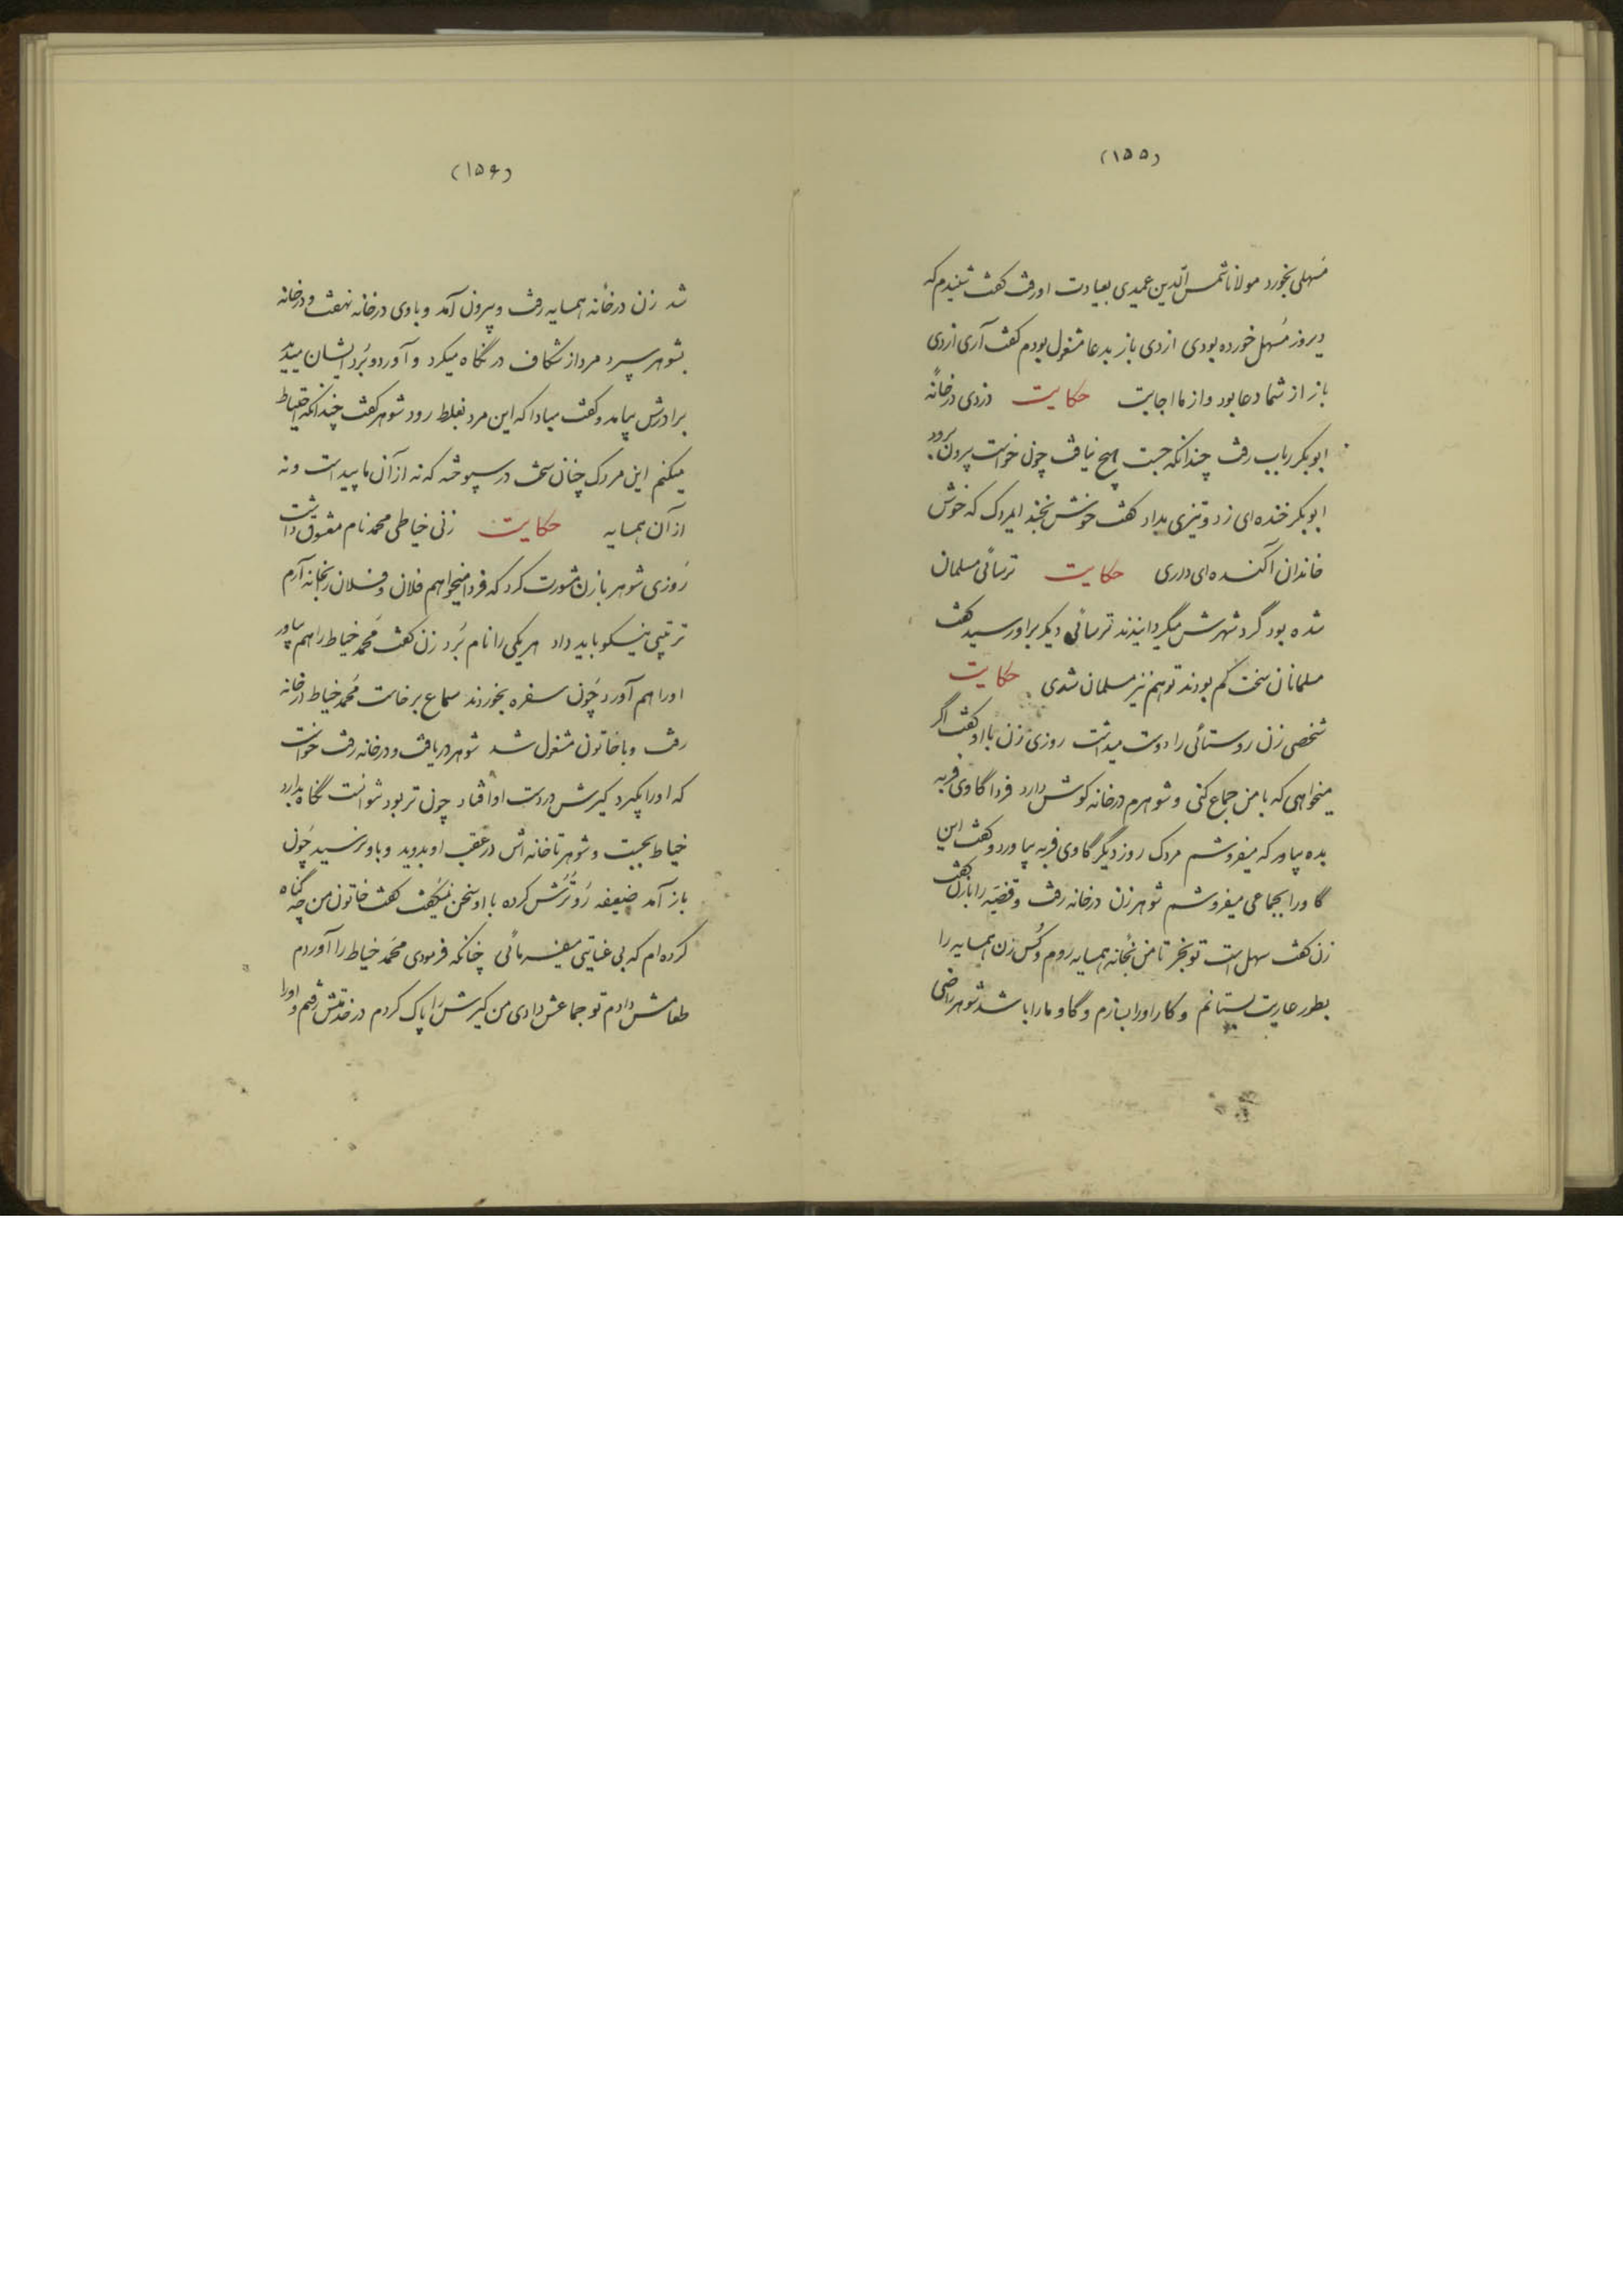 (۱۵۵)
مسهلی بخورد مولانا شمس الدین عمیدی بعیادت او رفت گفت شنیدم که
دیروز مسهل خورده بودی از دی باز بدعا مشغول بودم گفت آری از دی
باز از شما دعا بود و از ما اجابت حکایت دزدی در خانهٔ
ابوبکر ربابی رفت چندانکه جست هیچ نیافت چون خواست بیرون رود
ابوبکر خنده‌ای زد و تیزی بداد گفت خوش بخند ایمردک که خوش
خاندان آکنده‌ای داری حکایت ترسائی مسلمان
شده بود گرد شهرش میگردانیدند ترسائی دیگر براو رسید گفت
مسلمانان سخت کم بودند تو هم نیز مسلمان شدی حکایت
شخصی زن روستائی را دوست میداشت روزی زن با او گفت اگر
میخواهی که با من جماع کنی و شوهرم در خانه کوش دارد فردا گاوی فربه
بده بیاور که میفروشم مردک روز دیگر گاوی فربه بیاورد و گفت این
گاو را بجماعی میفروشم شوهر زن در خانه رفت و قضیه را بازن گفت
زن گفت سهل است تو بخر تا من بخانه همسایه روم و کس زن همسایه را
بطور عاریت بستانم و کار او را بسازم و گاو ما را باشد شوهر راضی
(۱۵۶)
شد زن در خانه همسایه رفت و بیرون آمد و با وی در خانه نهفت و در خانه
بشوهر سپرد مرد از شکاف در نگاه میکرد و آورد و برد ایشان میدید
برادرش بیامد و گفت مبادا که این مرد بغلط رود شوهر گفت چندانکه احتیاط
میکنم این مردک چنان سخت در سپوخته که نه از آن ما پیداست و نه
از آن همسایه حکایت زنی خیاطی محمد نام معشوق داشت
روزی شوهر با زن مشورت کرد که فردا میخواهم فلان و فلان را بخانه آرم
ترتیبی نیکو باید داد هر یکی را نام برد زن گفت محمد خیاط را هم بیاور
او را هم آورد چون سفره بخوردند سماع برخاست محمد خیاط در خانه
رفت و با خاتون مشغول شد شوهر دریافت و در خانه رفت خواست
که او را بگیرد کیرش در دست او افتاد چون تر بود نتوانست نگاه بدارد
خیاط بجست و شوهر تا خانه‌اش در عقب او بدوید و باو نرسید چون
باز آمد ضعیفه رو ترش کرده با او سخن نمیگفت گفت خاتون من چه گناه
کرده‌ام که بی عنایتی میفرمائی چنانکه فرمودی محمد خیاط را آوردم
طعامش دادم تو جماعش دادی من کیرش را پاک کردم در خدمتش رفتم و او را